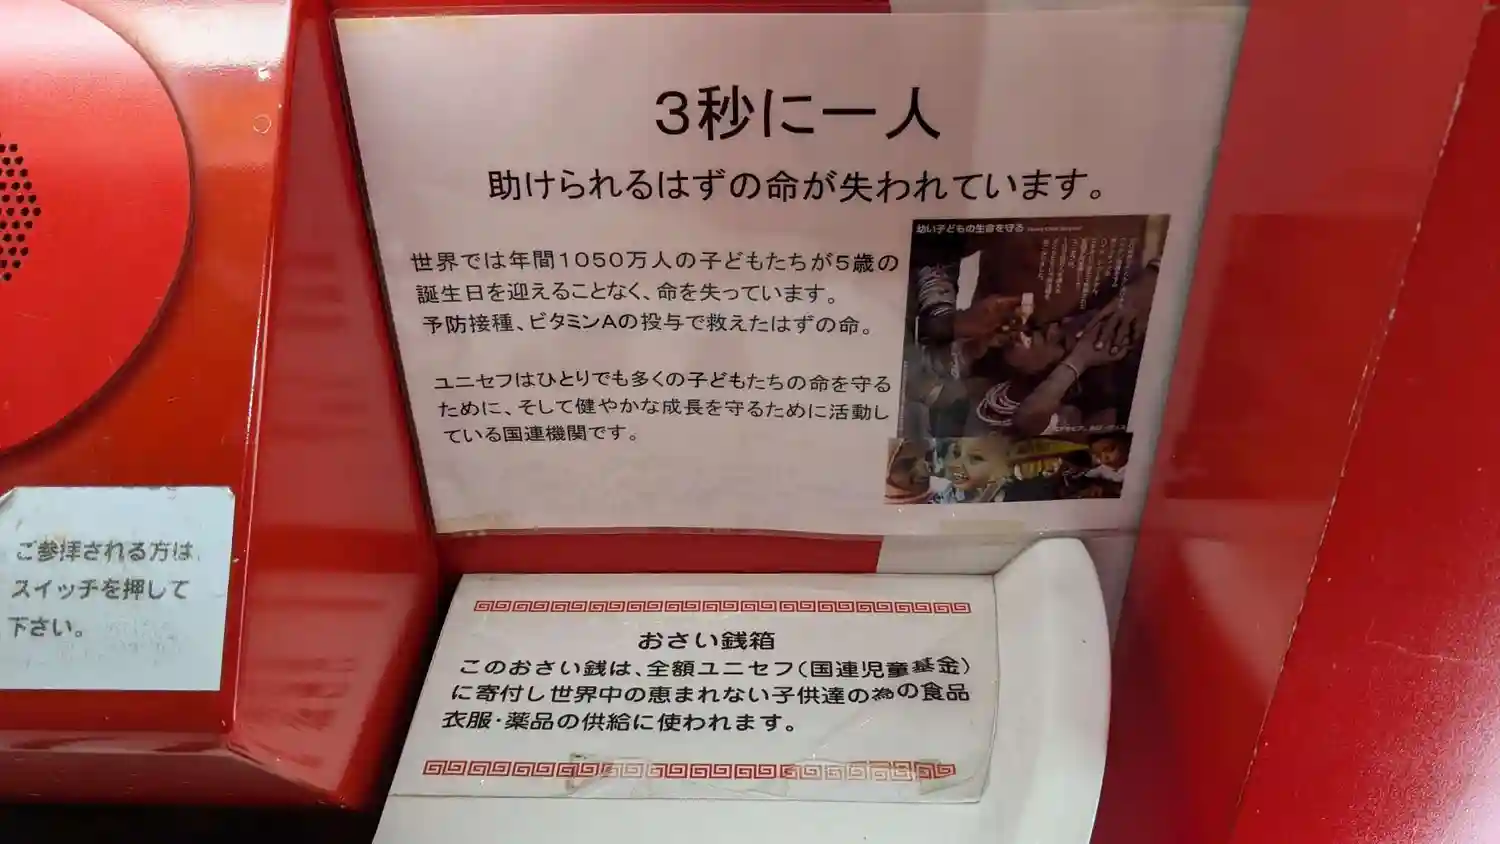 3秒に一人
助けられるはずの命が失われています。
世界では年間1050万人の子どもたちが5歳の
誕生日を迎えることなく、命を失っています。
予防接種、ビタミンAの投与で救えたはずの命。
ユニセフはひとりでも多くの子どもたちの命を守る
ために、そして健やかな成長を守るために活動し
ている国連機関です。
幼い子どもの生命を守る
ご参拝される方は、
スイッチを押して
下さい。
おさい銭箱
このおさい銭は、全額ユニセフ(国連児童基金)
に寄付し世界中の恵まれない子供達の為の食品
衣服・薬品の供給に使われます。